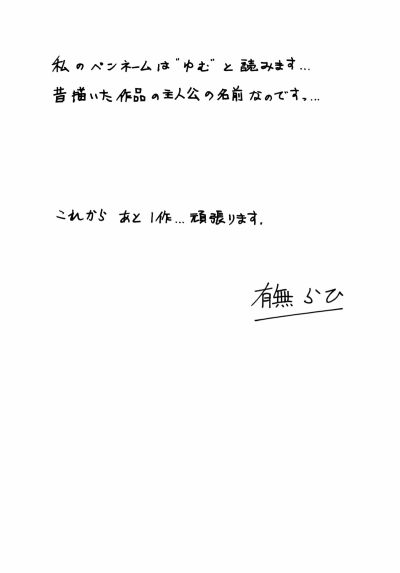 私のペンネームは"ゆむ"と読みます…
昔描いた作品の主人公の名前なのですっ…
これから あと1作…頑張ります.
有無らひ